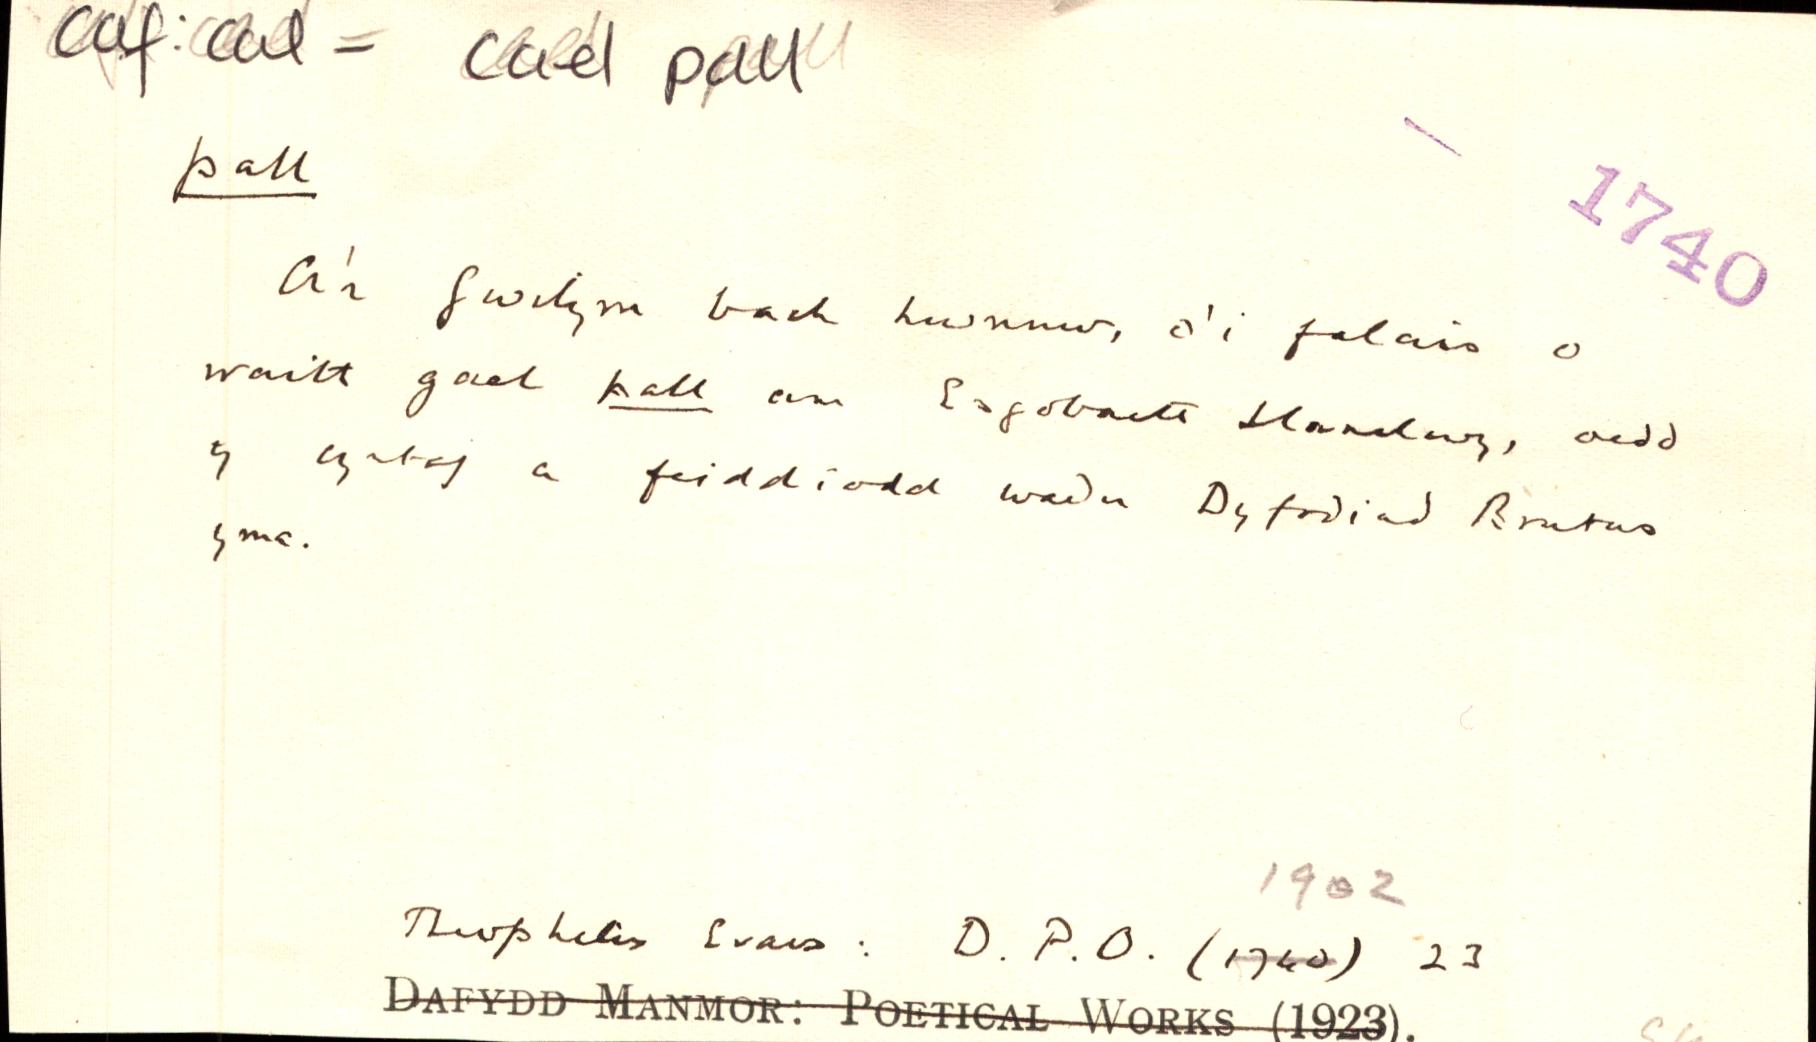 caf: cael = cael pall
pall
1740
A'r Gwilym bach hwnnw, o'i falais o
waith gael pall am Esgobaeth Llanelwy, oedd
y cyntaf a feiddiodd wadu Dyfodiad Brutus
yma.
1902
Theophilus Evans: D. P. O. (1740) 23
DAFYDD MANMOR: POETICAL WORKS (1923).